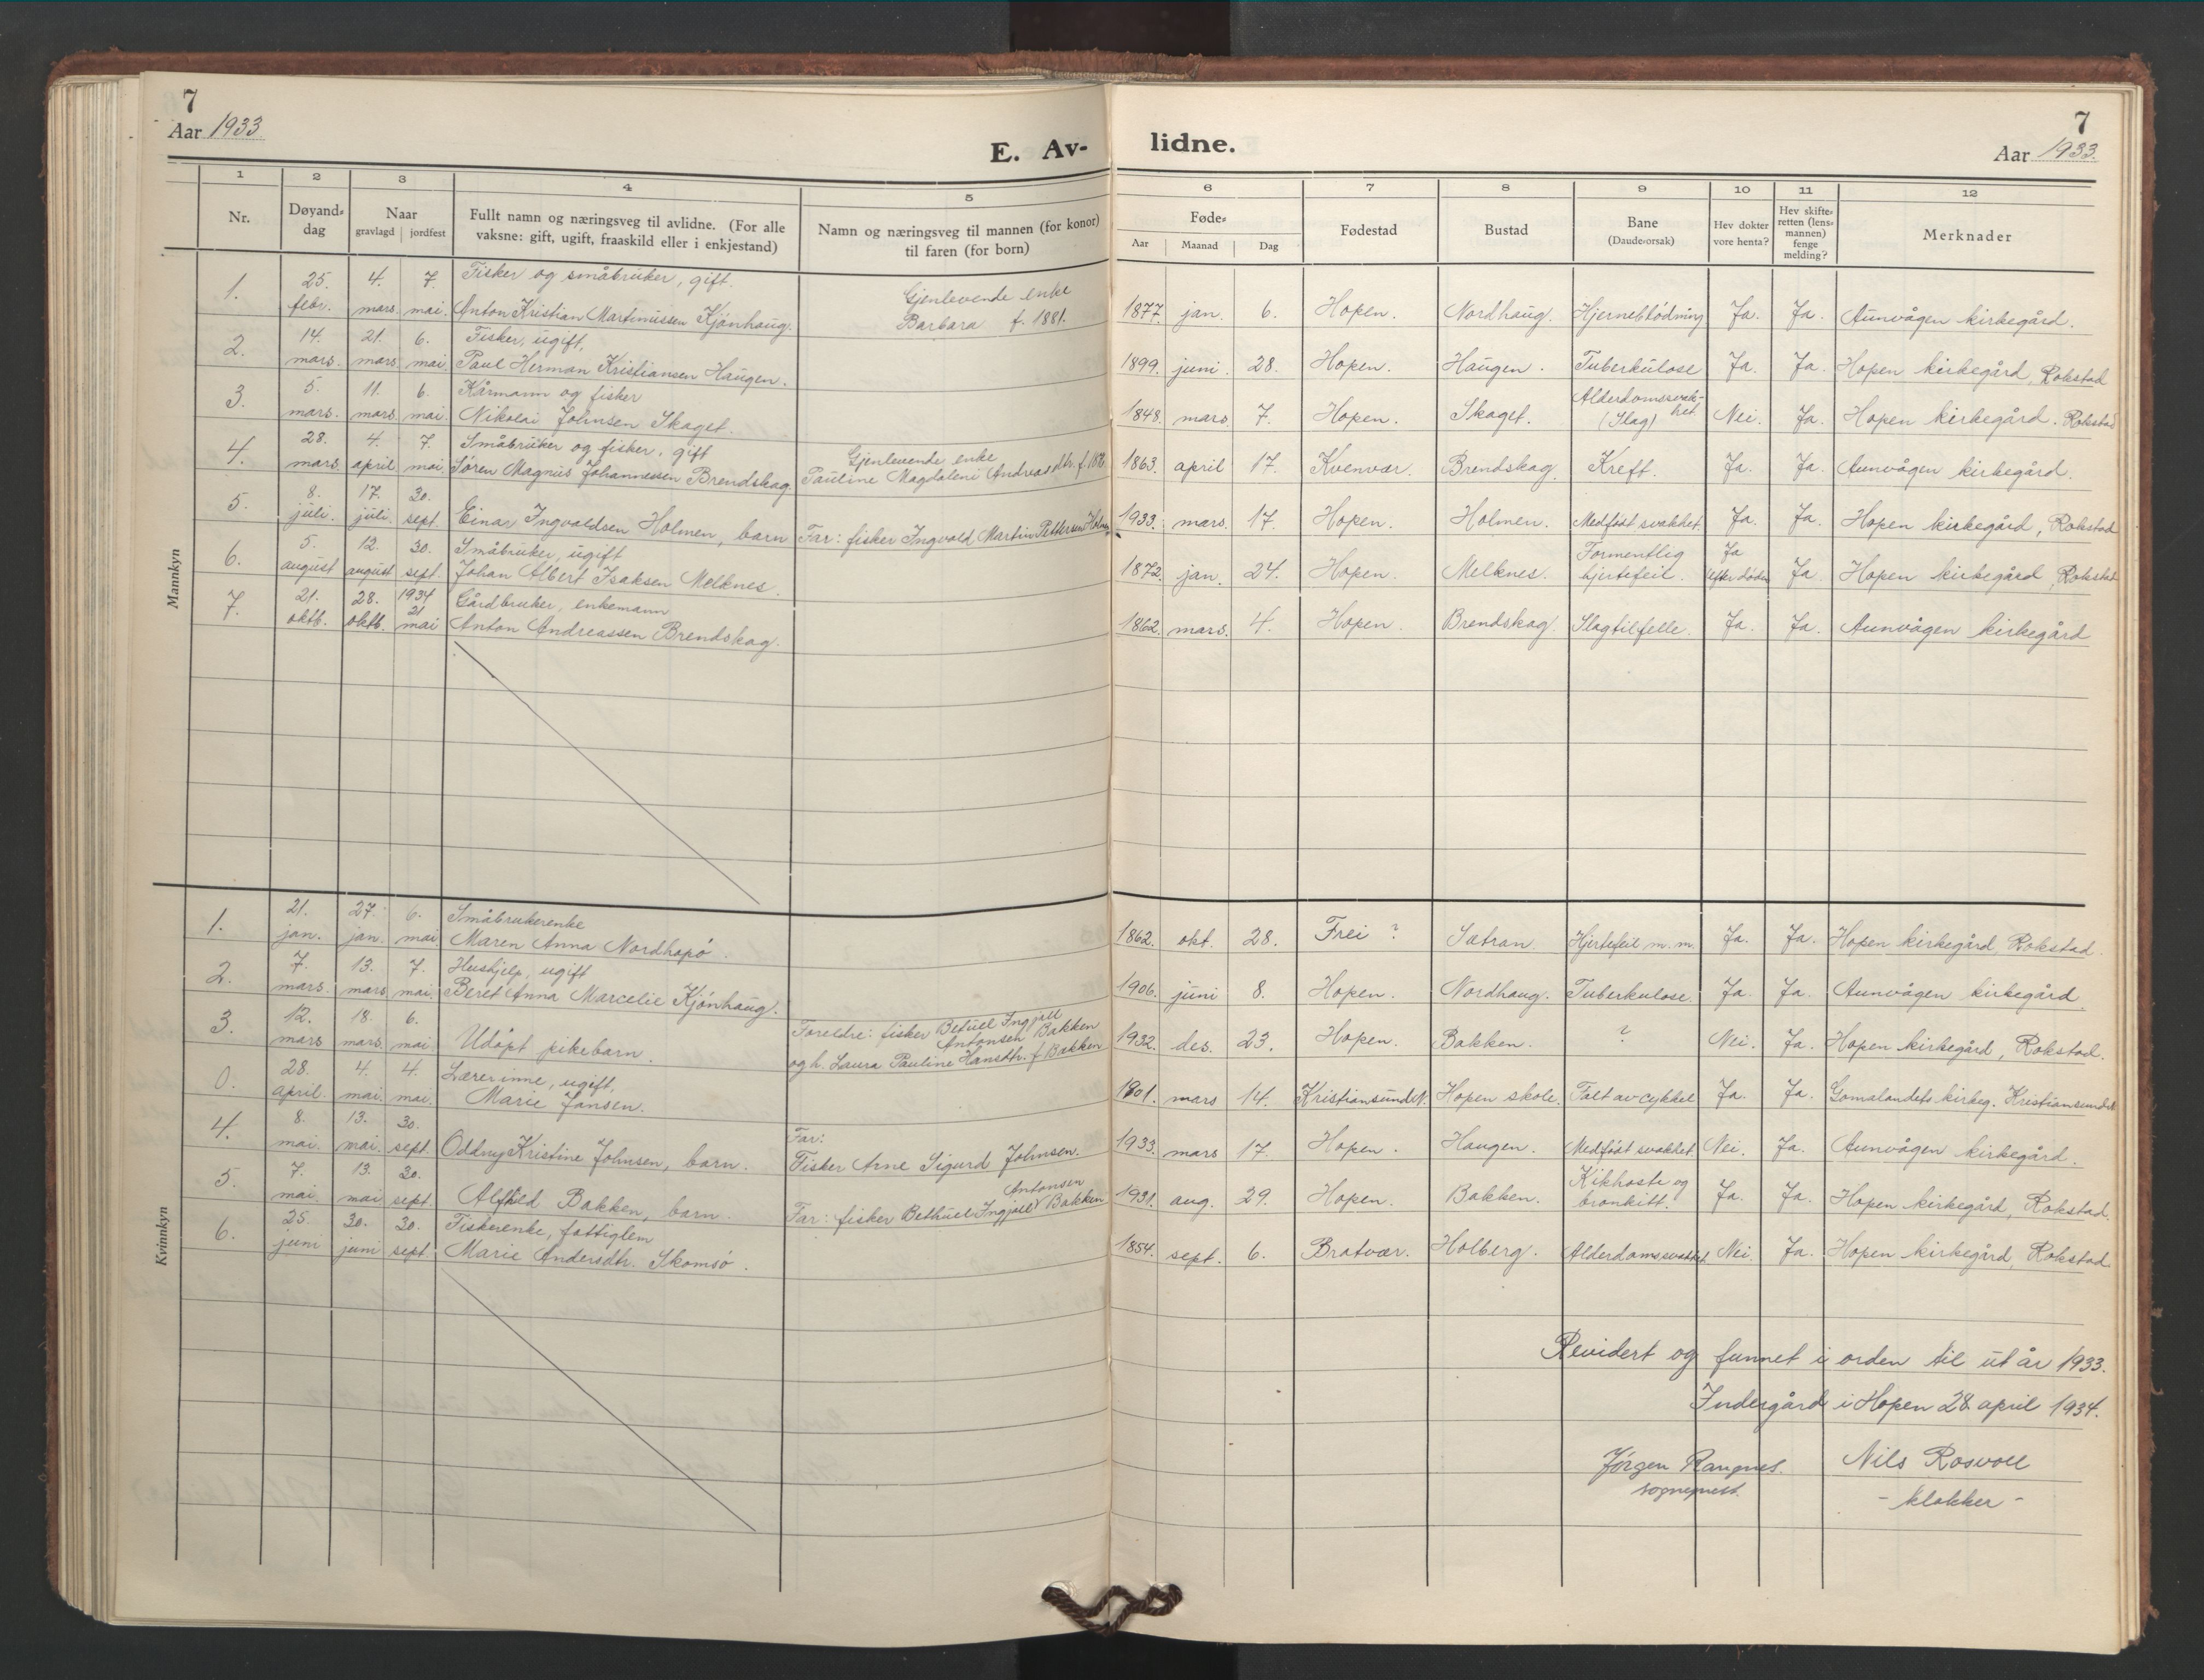 7
Aar 1933
E. Av-
lidne.
7
Aar 1933.
1 2 3 4 5 6 7 8 9 10 11 12
Nr.
Døyand-
dag
Naar
gravlagd jordfest
Fullt namn og næringsveg til avlidne. (For alle
vaksne: gift, ugift, fraaskild eller i enkjestand)
Namn og næringsveg til mannen (for konor)
til faren (for born)
Føde-
Aar Maanad Dag
Fødestad
Bustad
Bane
(Daude-orsak)
Hev dokter
vore henta?
Hev skifte-
retten (lens-
mannen)
fenge
melding?
Merknader
Mannkyn
25. 4. 7. Fisker og småbruker, gift. Gjenlevende enke
1. febr. mars. mai. Anton Kristian Martinussen Kjønhaug. Barbara f. 1881. 1877. jan. 6. Hopen. Nordhaug. Hjerneblødning Ja. Ja. Aunvågen kirkegård.
14. 21. 6. Fisker, ugift,
2. mars. mars. mai. Paul Herman Kristiansen Haugen. 1899. juni. 28. Hopen. Haugen. Tuberkulose Ja. Ja. Hopen kirkegård, Rokstad
5. 11. 6. Kårmann og fisker Alderdomssvak-
het
3. mars. mars. mai. Nikolai Johnsen Skaget. 1848. mars. 7. Hopen. Skaget. (Slag) Nei. Ja. Hopen kirkegård. Rokstad
28. 4. 7. Småbruker og fisker, gift Gjenlevende enke
4. mars. april mai. Søren Magnus Johannessen Brendskag. Pauline Magdaleni Andreasdtr. f. 1876 1863. april 17. Kvenvær. Brendskag. Kreft. Ja. Ja. Aunvågen kirkegård.
8. 17. 30.
5. juli. juli. sept. Einar Ingvaldsen Holmen, barn Far: fisker Ingvald Martin Pettersen Holmen 1933. mars. 17. Hopen. Holmen. Medfødt svakhet Ja. Ja. Hopen kirkegård, Rokstad
5. 12. 30. Småbruker, ugift Formentlig Ja
6. august august sept. Johan Albert Isaksen Melknes. 1872. jan. 24. Hopen. Melknes. hjertefeil. efter døden Ja. Hopen kirkegård, Rokstad
21. 28. 1934 Gårdbruker, enkemann
21
7. oktb. oktb. mai Anton Andreassen Brendskag. 1862. mars. 4. Hopen. Brendskag. Slagtilfelle. Ja. Ja. Aunvågen kirkegård
Kvinnkyn
21. 27. 6. Småbrukerenke
1. jan. jan. mai Maren Anna Nordhopø. 1862. okt. 28. Frei ? Sætran Hjertefeil m.m. Ja. Ja. Hopen kirkegård, Rokstad.
7. 13. 7. Hushjelp, ugift
2. mars. mars mai. Beret Anna Marcelie Kjønhaug. 1906. juni 8. Hopen. Nordhaug. Tuberkulose. Ja. Ja. Aunvågen kirkegård.
12. 18. 6. Foreldre: fisker Betuel Ingjall
Antonsen Bakken
3. mars mars. mai Udøpt pikebarn. og h. Laura Pauline Hansdtr. f Bakken 1932. des. 23. Hopen. Bakken. ? Nei. Ja. Hopen kirkegård, Rokstad.
28. 4. 4. Lærerinne, ugift,
0. april. mai. mai. Marie Jansen. 1901. mars 14. Kristiansund N. Hopen skole. Falt av cykkel Ja. Ja. Gomalandets kirkeg. Kristiansund N
8. 13. 30. Far:
4. mai. mai. sept. Oddny Kristine Johnsen, barn. Fisker Arne Sigurd Johnsen. 1933. mars 17. Hopen. Haugen. Medfødt svakhet Nei. Ja. Aunvågen kirkegård.
7. 13 30. Antonsen Kikhoste og
5. mai mai sept. Alfhild Bakken, barn. Far: fisker Bethuel Ingjall Bakken 1931. aug. 29. Hopen. Bakken. bronkitt. Ja. Ja. Hopen kirkegård, Rokstad.
25. 30. 30. Fiskerenke, fattiglem
6. juni juni sept. Marie Andersdtr. Skomsø. 1854. sept. 6. Bratvær. Holberg. Alderdomssvakhet Nei. Ja. Hopen kirkegård, Rokstad.
Revidert og funnet i orden til ut år 1933.
Indergård i Hopen 28 april 1934.
Jørgen Rangnes. Nils Rosvoll
sogneprest. - klokker -